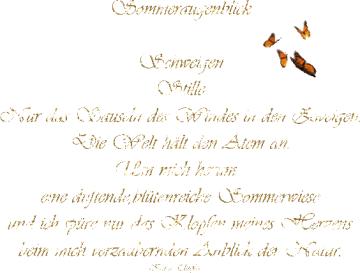 Sommeraugenblick
Schweigen
Stille
Nur das Rauschen des Windes in den Zweigen.
Die Welt hält den Atem an.
Um mich herum
eine duftende,blütenreiche Sommerwiese
und ich spüre nur das Klopfen meines Herzens
beim mich verzaubernden Anblick der Natur.